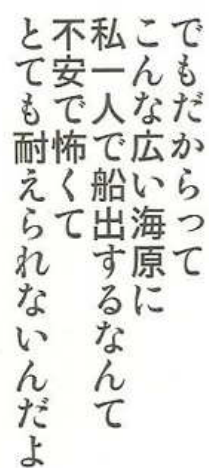 でもだからって
こんな広い海原に
私一人で船出するなんて
不安で怖くて
とても耐えられないんだよ